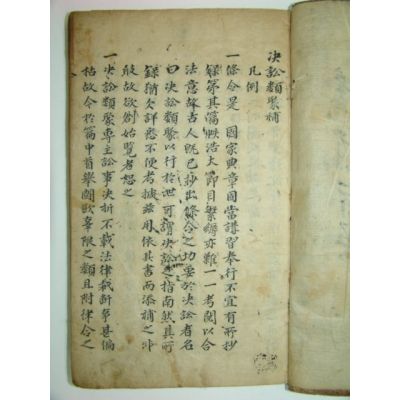 決訟類聚補
凡例
一條令是 國家典章固當講習奉行不宜有所抄
錄第其篇帙浩大節目繁縟亦難一一考閱以合
法意故古人旣已抄出條令之切要於決訟者名
曰決訟類聚以行於世可謂決訟之指南然其所
錄猶欠詳悉不便考據玆用依其書而添補之非
敢故欲創始覽者恕之
一決訟類聚專主訟事決折不載法律裁斷等甚偏
枯故今於篇中首擧鬪敺辜限之類且附律令之